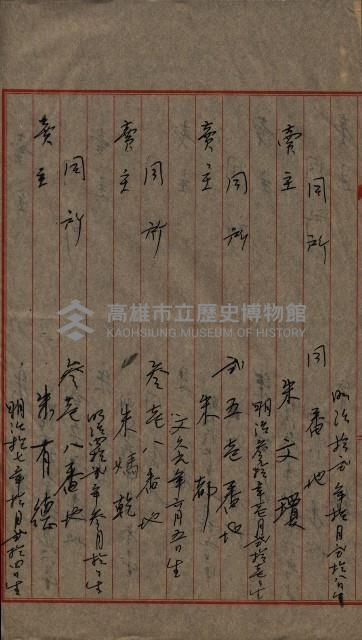 明治拾弐年拾月弐拾八日生
同所 同番地
賣主 朱文瓊
明治参拾年七月弐拾七日生
同所 弐五壱番地
賣主 朱都
文久元年六月五日生
同所 参壱八番地
賣主 朱媽乾
明治四拾弐年参月拾日生
同所 参壱八番地
賣主 朱有德
明治拾七年拾月弐拾四日生
高雄市立歷史博物館
KAOHSIUNG MUSEUM OF HISTORY